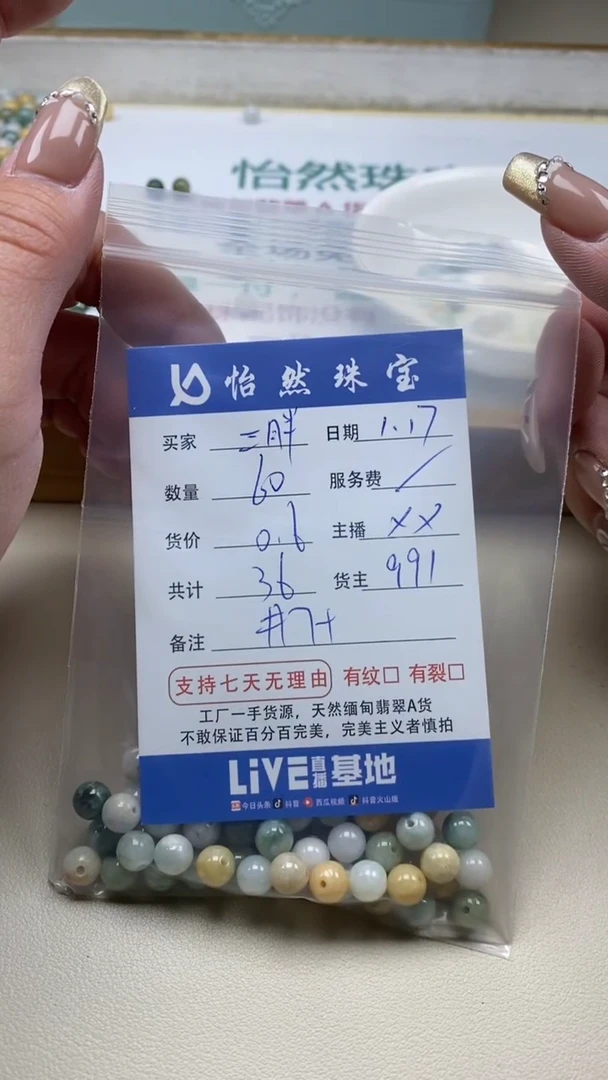 怡然珠
怡然珠宝
买家 三胖 日期 1.17
数量 60 服务费 /
货价 0.6 主播 XX
共计 36 货主 991
备注
支持七天无理由 有纹□ 有裂□
工厂一手货源，天然缅甸翡翠A货
不敢保证百分百完美，完美主义者慎拍
LiVE直播基地
今日头条 抖音 西瓜视频 抖音火山版